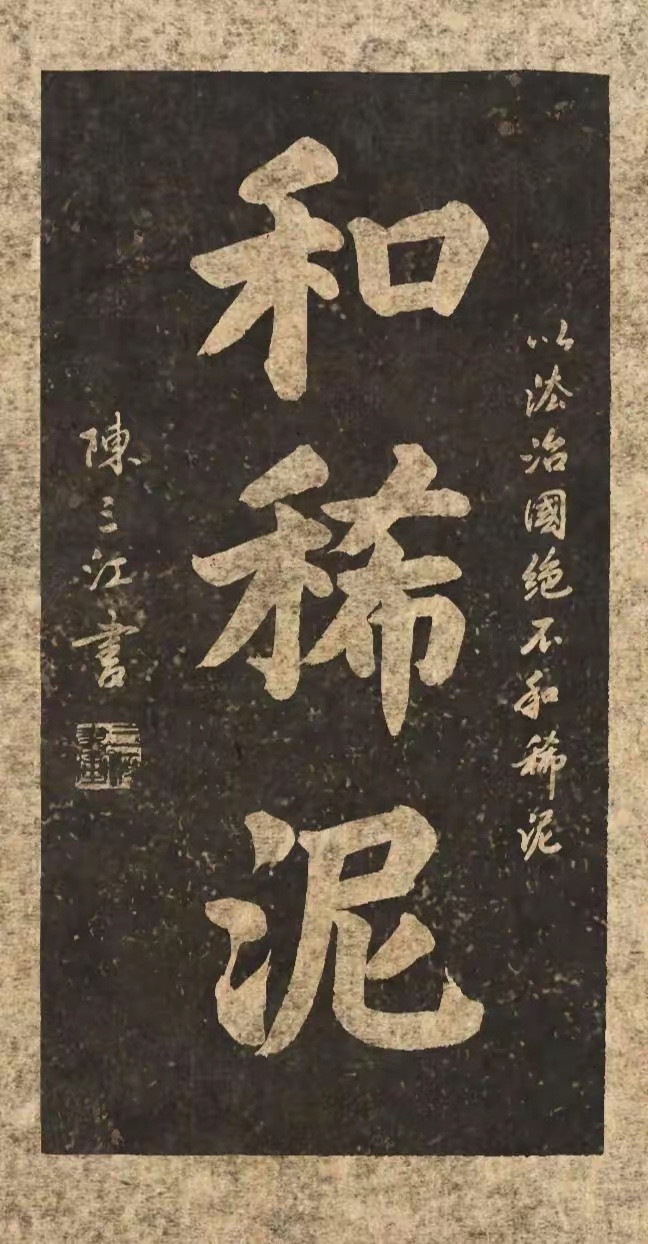 以法治國絶不和稀泥
和稀泥
陳三江書